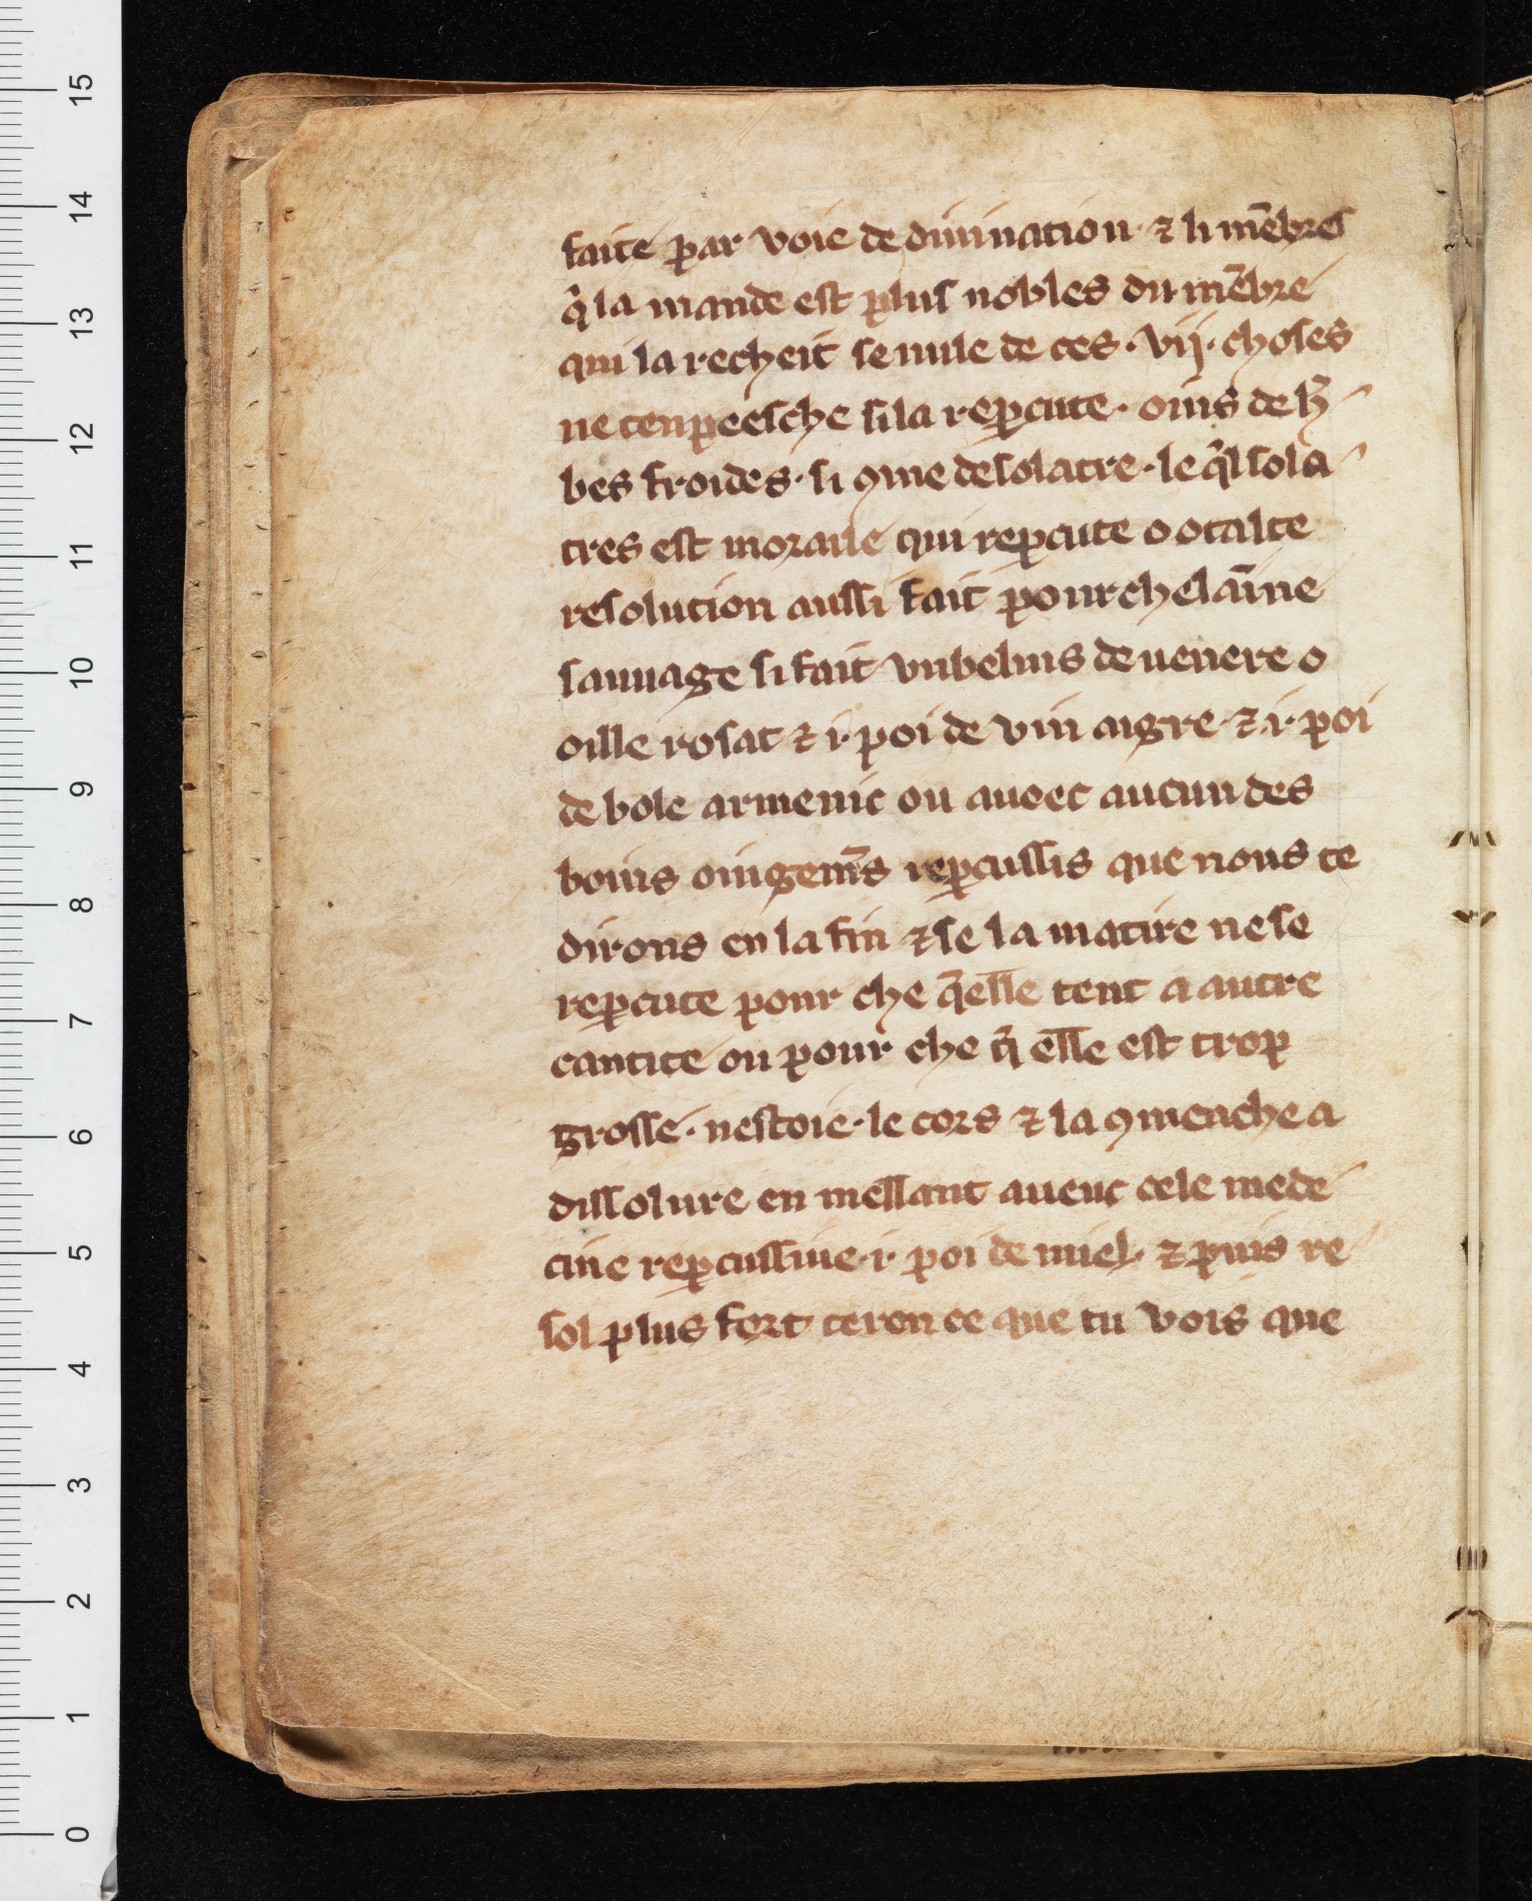 faite par voie de diuination · ⁊ li mēbres
q̄ la mande est plus nobles du mēbre
qui la recheit se nule de ces · vij · choses
ne tenpeesche si la reꝑcute · oins de h̾
bes froides · si ꝯme de solatre · le q̄l sola
tres est moraile qui reꝑcute o otalte
resolution aussi fait pourchelaīne
sauuage si fait vnbelius de uenere o
oille rosat ⁊ ·i· poi de vin aigre ⁊ ·i· poi
de bole armenic ou auoec aucun des
boins oingem̄s reꝑcussis que nous te
dirons en la fin ⁊ se la matire ne se
reꝑcute pour che q̄elle tent a autre
cantite ou pour che q̄ elle est trop
grosse · nestoie · le cors ⁊ la ꝯmenche a
dissolure en mellant aueuc cele mede
cine reꝑcussiue ·i· poi de miel · ⁊ puis re
sol plus fort teron ce que tu vois que
15
14
13
12
11
10
9
8
7
6
5
4
3
2
1
0